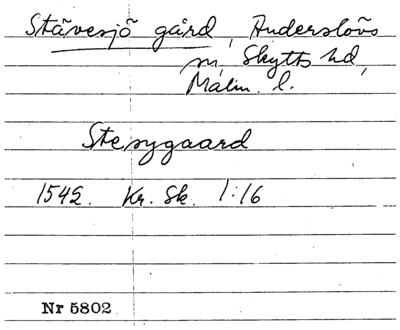 Stävesjö gård, Anderslövs
sn, Skytts hd,
Malm. l.
Stesygaard
1542. Kr. Sk. 1:16
Nr 5802